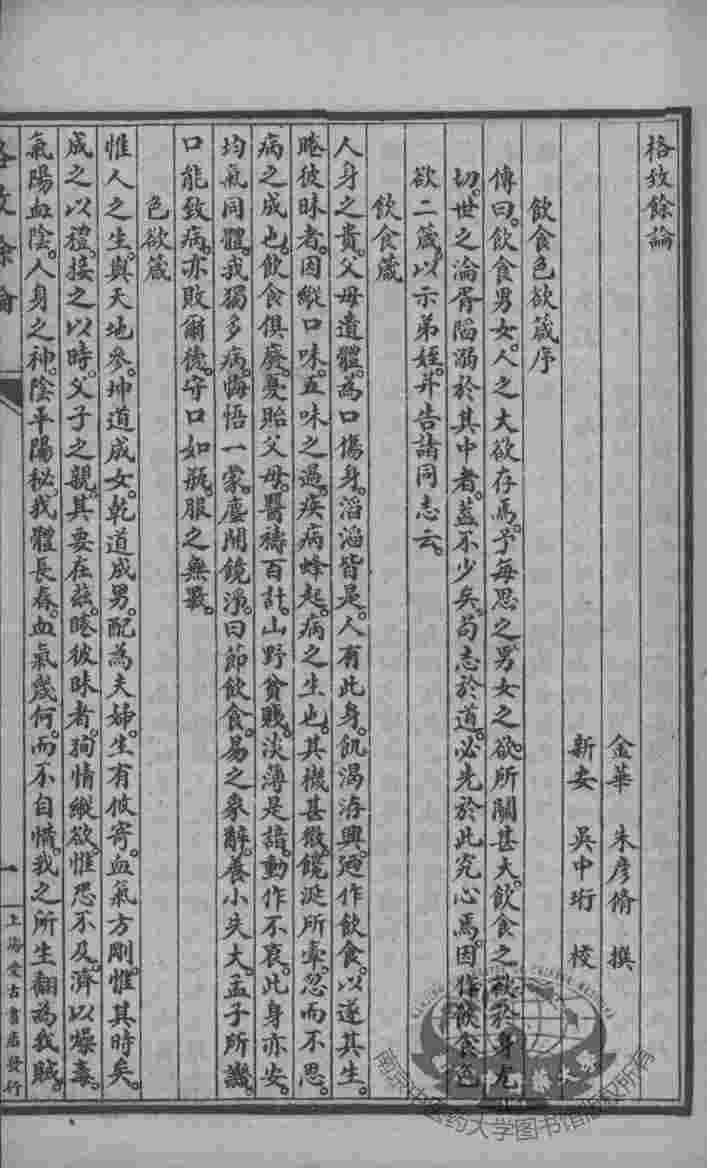 格致餘論
金華　朱彥脩　撰
新安　吳中珩　校
飲食色欲箴序
傳曰。飲食男女。人之大欲存焉。予每思之。男女之欲。所關甚大。飲食之欲。於身尤
切。世之淪胥陷溺於其中者。蓋不少矣。苟志於道。必先於此究心焉。因作飲食色
欲二箴。以示弟姪。并告諸同志云。
飲食箴
人身之貴。父母遺體。為口傷身。滔滔皆是。人有此身。飢渴洊興。廼作飲食。以遂其生。
睠彼昧者。因縱口味。五味之過。疾病蜂起。病之生也。其機甚微。饞涎所牽。忽而不思。
病之成也。飲食俱廢。憂貽父母。醫禱百計。山野貧賤。淡薄是諳。動作不衰。此身亦安。
均氣同體。我獨多病。悔悟一萌。塵開鏡淨。曰節飲食。易之象辭。養小失大。孟子所譏。
口能致病。亦敗爾德。守口如瓶。服之無斁。
色欲箴
惟人之生。與天地參。坤道成女。乾道成男。配為夫婦。生育攸寄。血氣方剛。惟其時矣。
成之以禮。接之以時。父子之親。其要在茲。睠彼昧者。狥情縱欲。惟恐不及。濟以燥毒。
氣陽血陰。人身之神。陰平陽秘。我體長春。血氣幾何。而不自惜。我之所生。翻為我賊。
格致餘論
一
上海受古書店發行
南京中医药大学图书馆版权所有